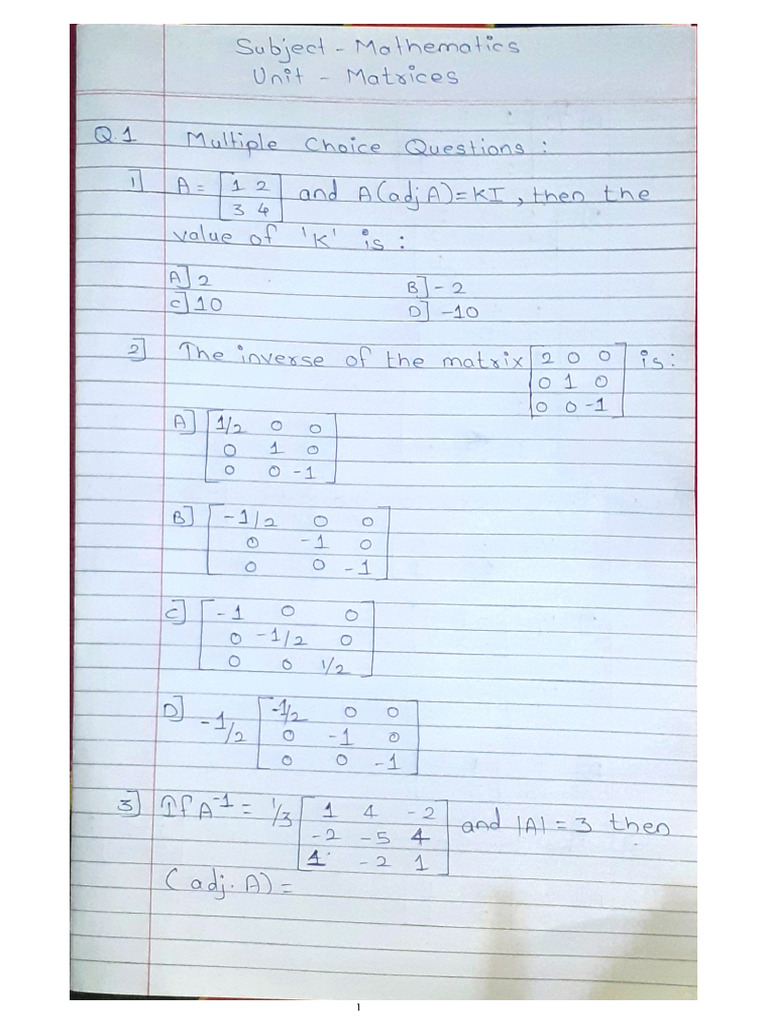 Subject - Mathematics
Unit - Matrices
Q.1 Multiple Choice Questions :
1] A = [1 2 and A(adj A) = KI, then the
3 4]
value of 'K' is :
A] 2 B] - 2
C] 10 D] -10
2] The inverse of the matrix [2 0 0 is :
0 1 0
0 0 -1]
A] [1/2 0 0
0 1 0
0 0 -1]
B] [-1/2 0 0
0 -1 0
0 0 -1]
C] [-1 0 0
0 -1/2 0
0 0 1/2]
D] -1/2 [-1/2 0 0
0 -1 0
0 0 -1]
3] If A⁻¹ = 1/3 [1 4 -2 and |A| = 3 then
-2 -5 4
1 -2 1]
(adj. A) =
1